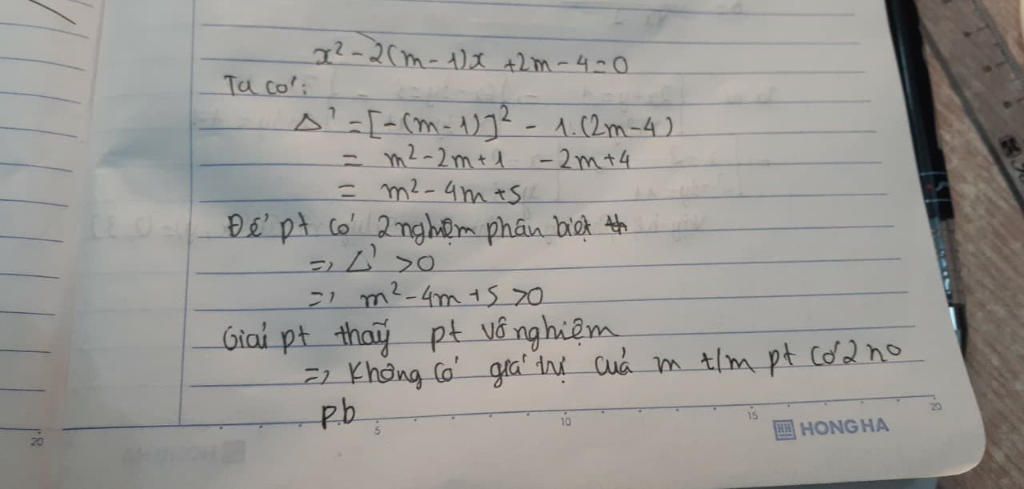 x² - 2(m - 1)x + 2m - 4 = 0
Ta có:
Δ' = [-(m - 1)]² - 1.(2m - 4)
= m² - 2m + 1 - 2m + 4
= m² - 4m + 5
Để pt có 2 nghiệm phân biệt th
=> Δ' > 0
=> m² - 4m + 5 > 0
Giải pt thấy pt vô nghiệm
=> Không có giá trị của m t/m pt có 2 no
p.b
20
5
10
15
20
HONG HA